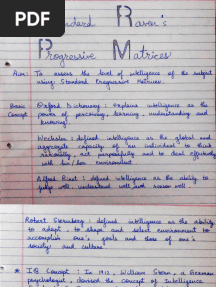 PDF
Standard Raven's
Progressive Matrices
Aim: To assess the level of intelligence of the subject
using Standard Progressive Matrices.
Basic Concept
Oxford Dictionary: Explains intelligence as the
power of perceiving, learning, understanding and
knowing
Wechsler: defined intelligence as the global and
aggregate capacity of an individual to think
rationally, act purposefully and to deal effectively
with his/her environment
Alfred Binet: defined intelligence as the ability to
judge well, understand well and reason well
Robert Sternberg: defined intelligence as the ability
to adapt, to shape and select environment to
accomplish one's goals and those of one's
society and culture
* IQ Concept: In 1912, William Stern, a German
psychologist, devised the concept of Intelligence